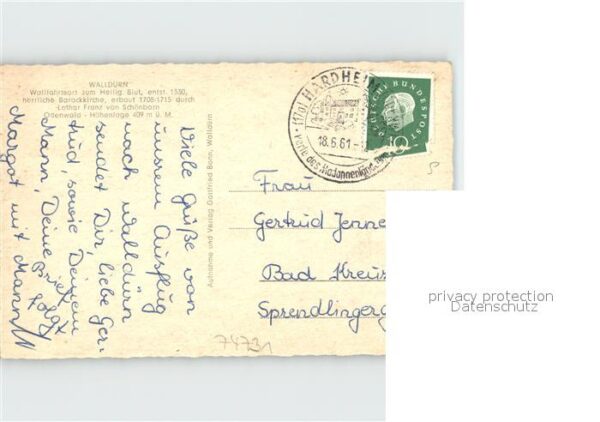 WALLDÜRN
Wallfahrtsort zum Heilig. Blut, entst. 1330,
herrliche Barockkirche, erbaut 1708-1715 durch
Lothar Franz von Schönborn
Odenwald - Höhenlage 409 m ü. M.
Viele Grüße von
unsrem Ausflug
nach Walldürn
sendet Dir, liebe Ger-
trud, sowie Deinem
Mann, Deine
Margot mit Mann
Brief folgt
Aufnahme und Verlag Gottfried Bonn, Walldürn
(17a) HARDHEIM
18.6.61
Perle des Madonnenländchens
DEUTSCHE BUNDESPOST
10
5
Frau
Gertrud Jenne
Bad Kreuz
Sprendlinger
74731
privacy protection
Datenschutz